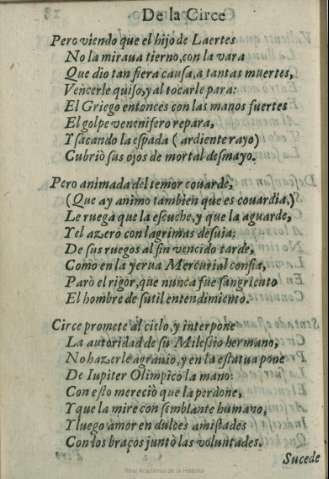 De la Circe
Pero viendo que el hijo de Laertes
No la miraua tierno, con la vara
Que dio tan fiera causa, a tantas muertes,
Vencerle quiso, y al tocarle para:
El Griego entonces con las manos fuertes
El golpe venenifero repara,
Y sacando la espada (ardiente rayo)
Cubriò sus ojos de mortal desmayo.
Pero animada del temor couarde,
(Que ay animo tambien que es couardia,)
Le ruega que la escuche, y que la aguarde,
Y el azero con lagrimas desuia:
De sus ruegos al fin vencido tarde,
Como en la yerua Mercurial confia,
Parò el rigor, que nunca fue sangriento
El hombre de sutil entendimiento.
Circe promete al cielo, y interpone
La autoridad de su Milessio hermano,
No hazerle agrauio, y en la estatua pone
De Iupiter Olimpico la mano:
Con esto mereciò que la perdone,
Y que la mire con semblante humano,
Y luego amor en dulces amistades
Con los braços juntò las voluntades.
Sucede
Real Academia de la Historia